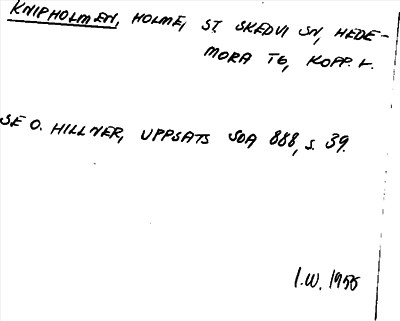 KNIPHOLMEN, HOLME, ST. SKEDVI SN, HEDE-
MORA TG, KOPP. L.
SE O. HILLNER, UPPSATS SOA 888, S. 39.
I.W. 1955